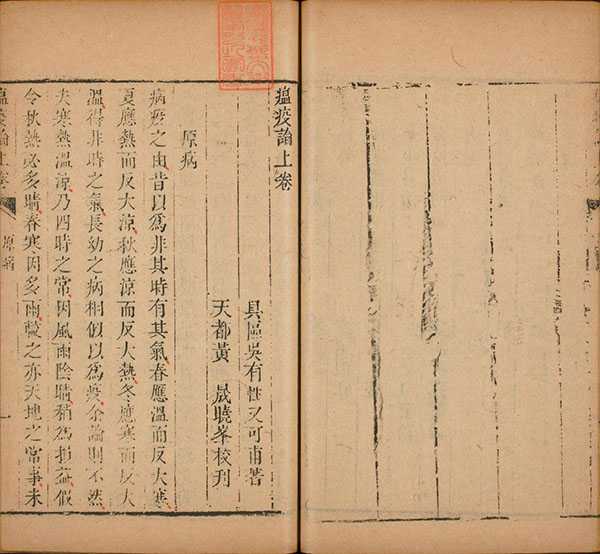 瘟疫論上卷
具區吳有性又可甫著
天都黃 晟曉峯校刊
原病
病疫之由昔以爲非其時有其氣春應溫而反大寒
夏應熱而反大涼秋應涼而反大熱冬應寒而反大
溫得非時之氣長幼之病相似以爲疫余論則不然
夫寒熱溫涼乃四時之常因風雨陰晴稍爲損益假
令秋熱必多晴春寒因多雨較之亦天地之常事未
瘟疫論上卷 原病 一